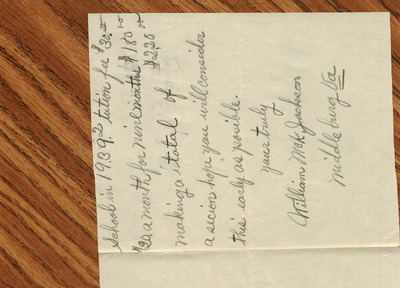 School in 1939. tution fee $30.00
$20 a month for nine months $180 00
making a total of $2.20
a secion hope you will consider
this early as posible.
yours truly
William McK Jackson
Middleburg Va